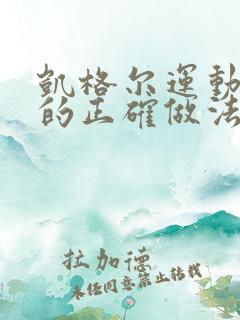 凱格尔運動
的正確做法
拉加德
未经同意禁止转载